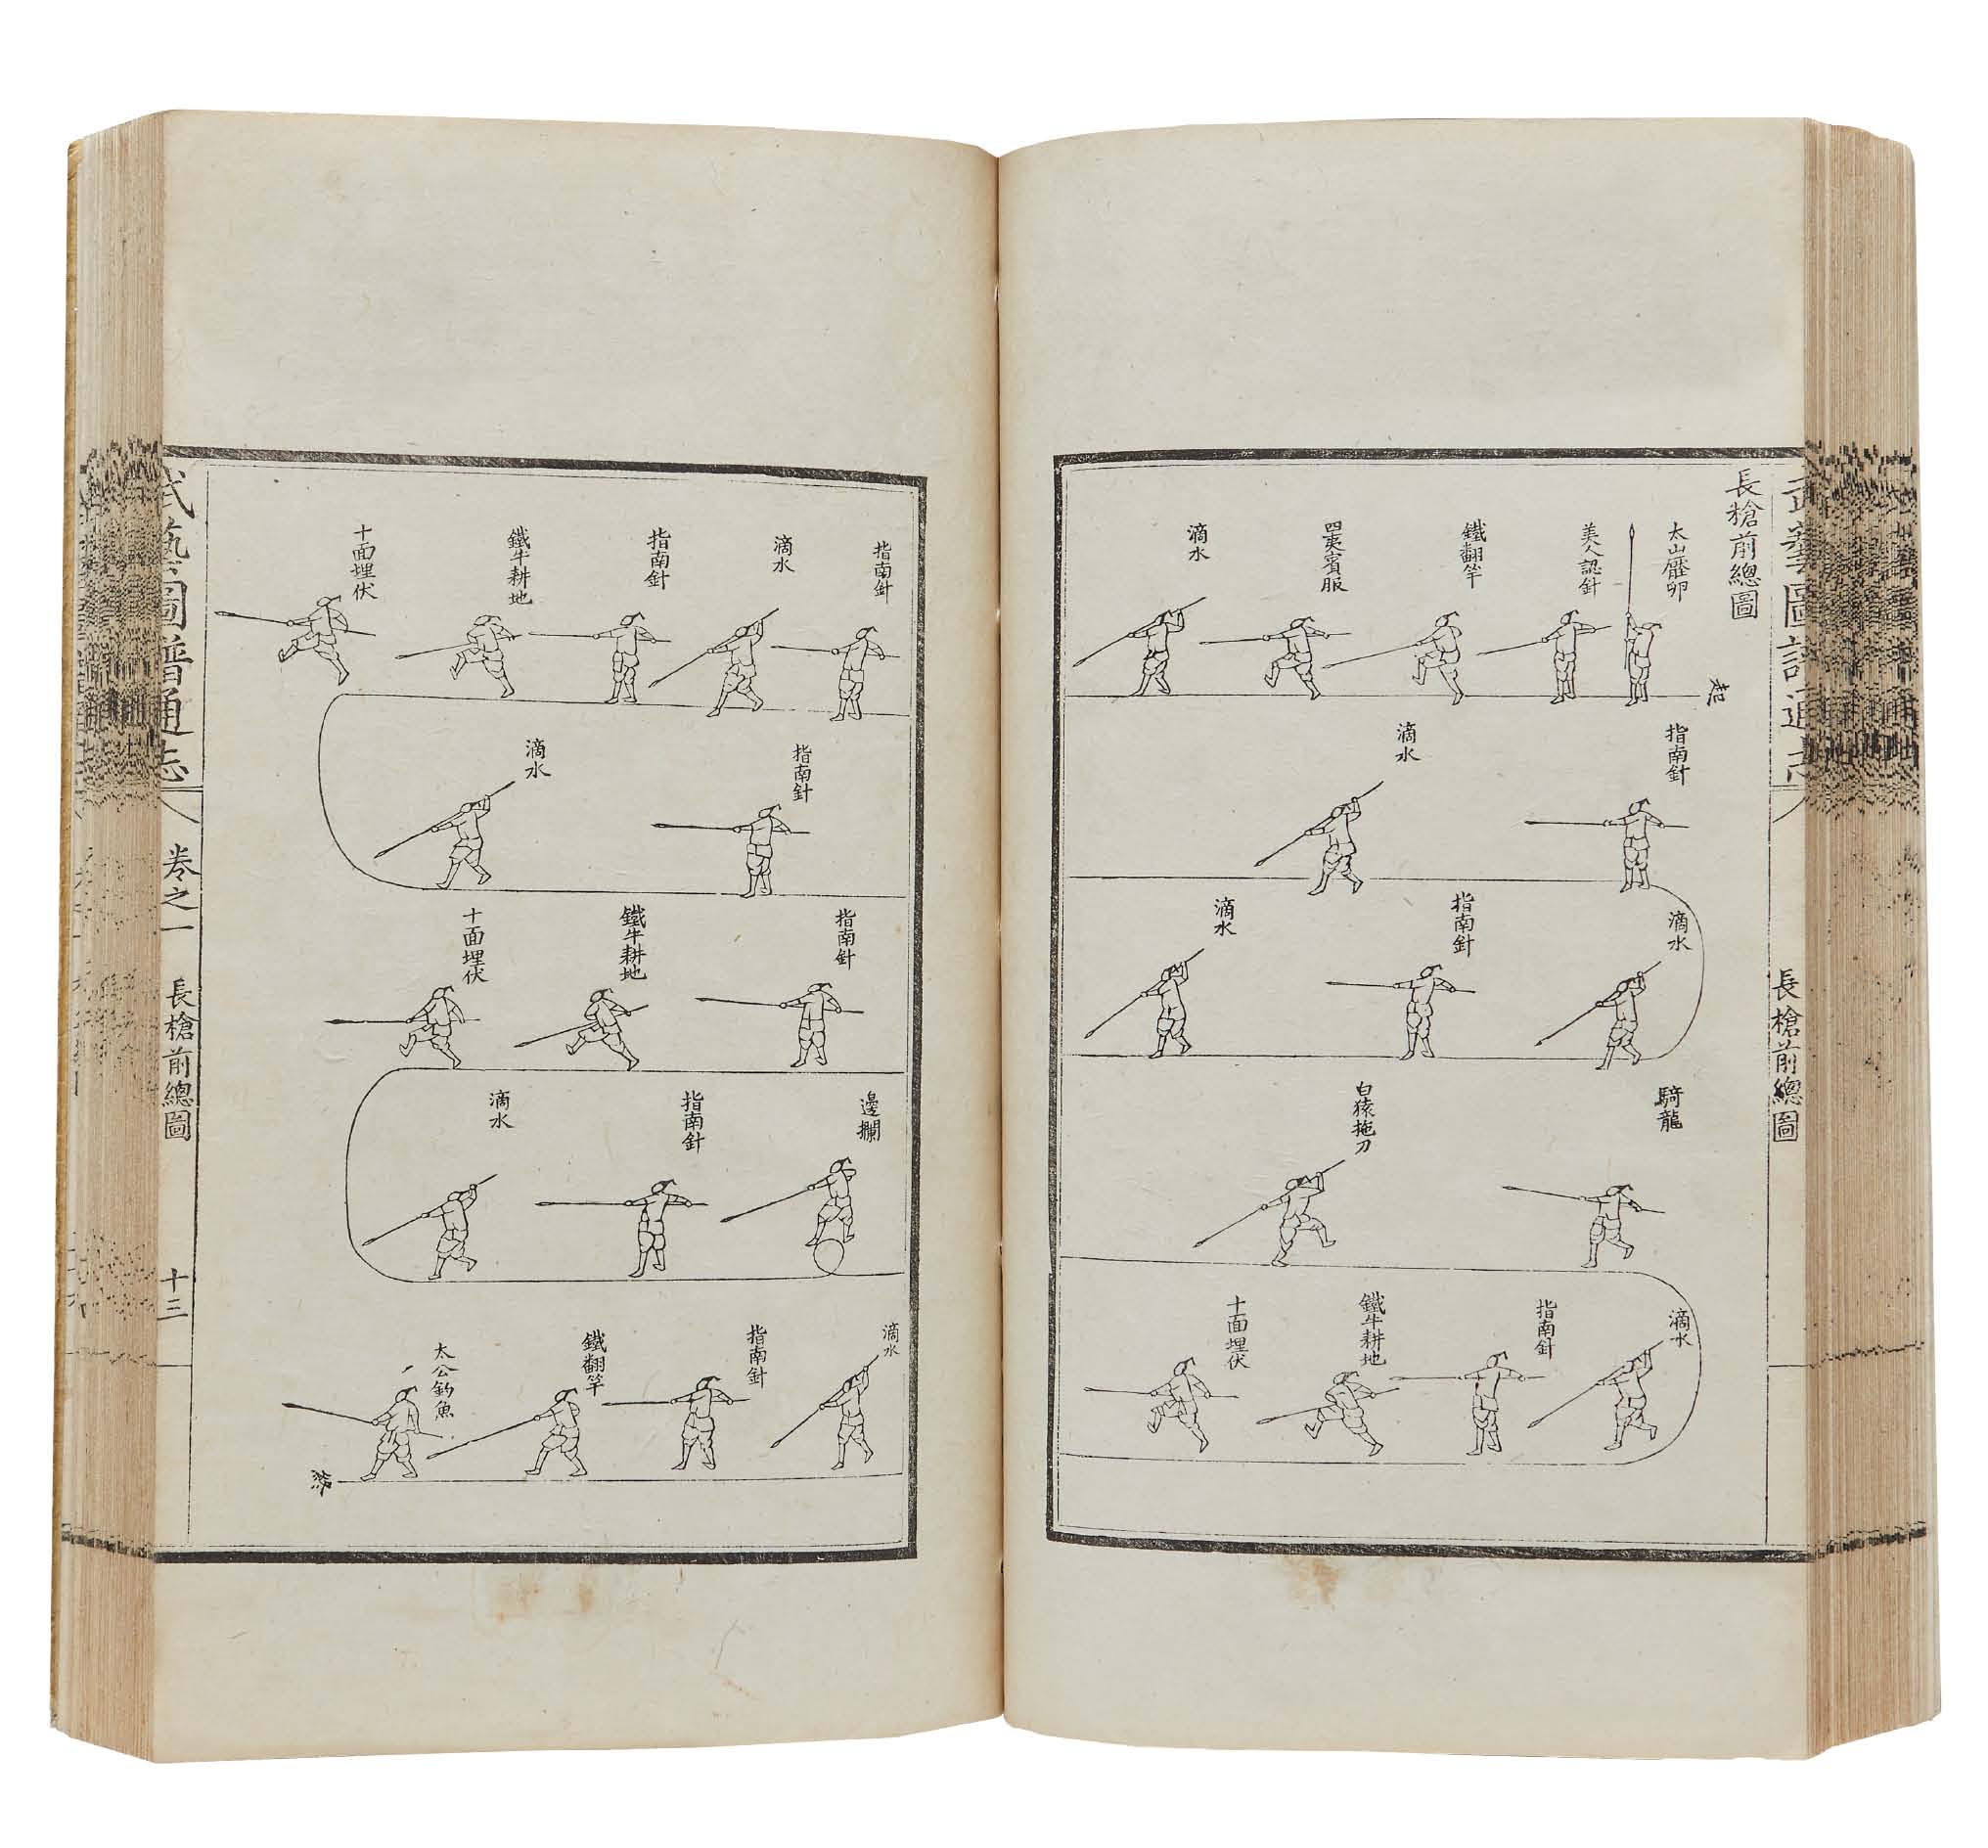 武藝圖譜通志
長槍前總圖
長槍前總圖
起
太山壓卵
美人認針
鐵翻竿
四夷賓服
滴水
指南針
滴水
滴水
指南針
滴水
騎龍
白猿拖刀
滴水
指南針
鐵牛耕地
十面埋伏
指南針
滴水
指南針
鐵牛耕地
十面埋伏
指南針
滴水
指南針
鐵牛耕地
十面埋伏
邊攔
指南針
滴水
滴水
指南針
鐵翻竿
太公釣魚
終
武藝圖譜通志
卷之一
長槍前總圖
十三